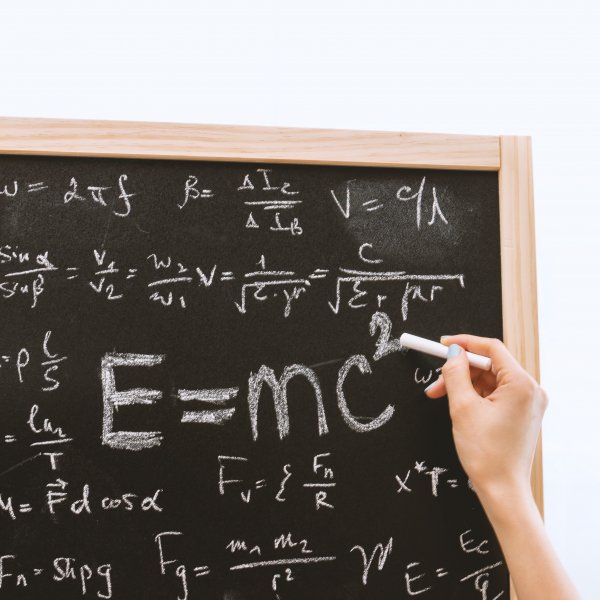 w = 2πf β = ΔI_c / ΔI_B V = c/λ
sinα / sinβ = v₁ / v₂ = w₂ / w₁ V = 1 / √ε·μ = c / √εr μr
= ρ l/S
E=mc²
= ln₂ / T
F_v = ξ F_n / R x*T =
M = F d cos α
F_n = Shρg F_g = m₁ m₂ / r² E =